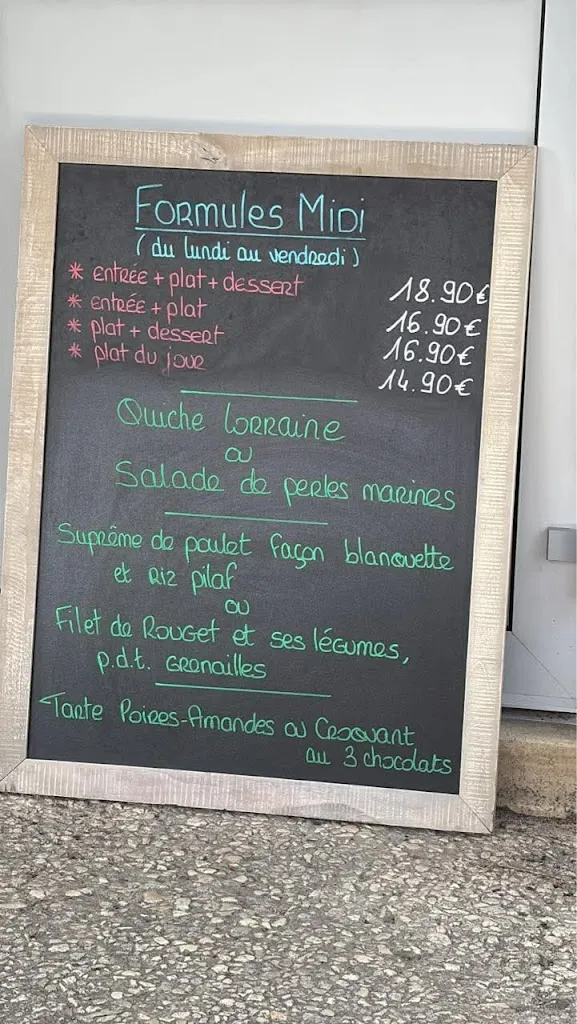 FORMULES MIDI
(du lundi au vendredi)
* entrée + plat + dessert 18.90€
* entrée + plat 16.90€
* plat + dessert 16.90€
* plat du jour 14.90€
Quiche LORRAINE
ou
Salade de perles marines
Suprême de poulet façon blanquette
et Riz pilaf
ou
Filet de ROUGET et ses légumes,
p.d.t. GRENAILLES
Tarte Poires-Amandes ou Croquant
au 3 chocolats